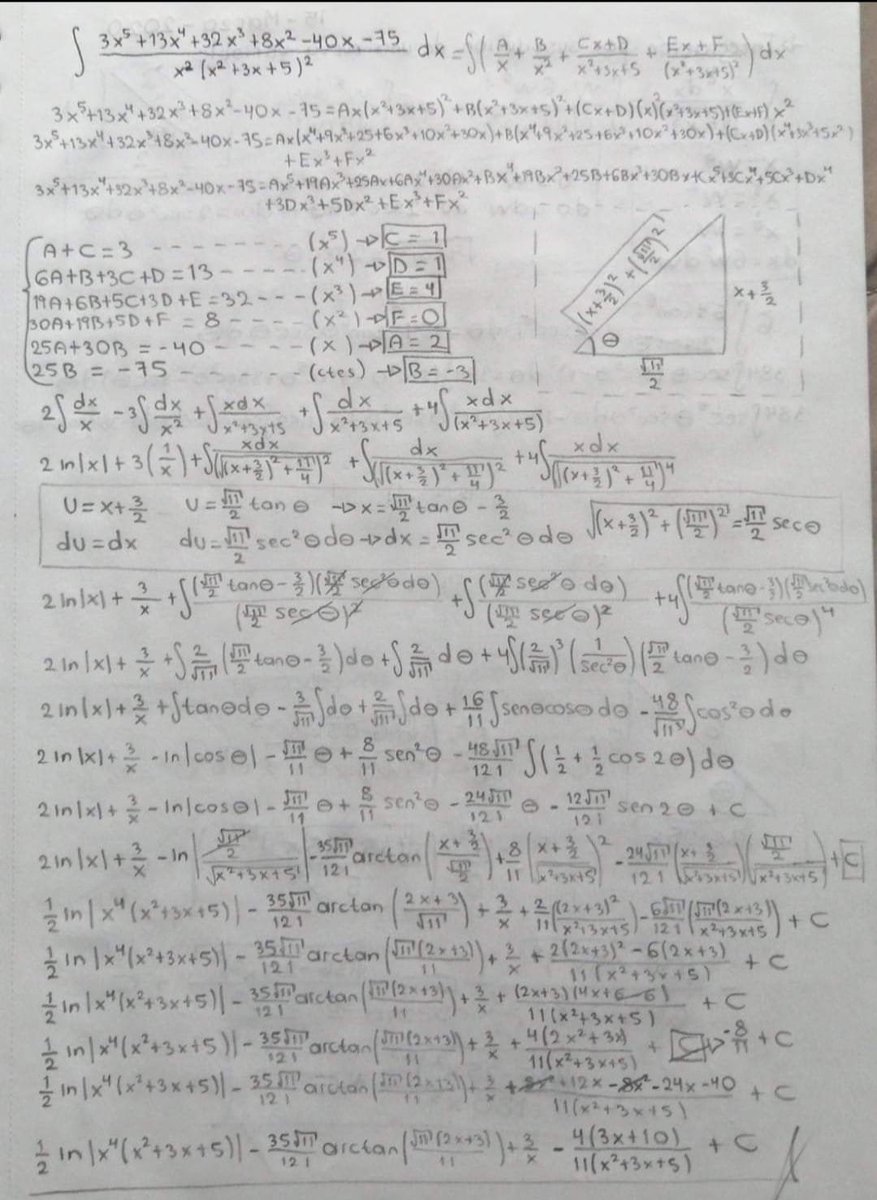 ∫ (3x⁵+13x⁴+32x³+8x²-40x-75)/(x²(x²+3x+5)²) dx = ∫(A/x + B/x² + (Cx+D)/(x²+3x+5) + (Ex+F)/(x²+3x+5)²) dx
3x⁵+13x⁴+32x³+8x²-40x-75=Ax(x²+3x+5)²+B(x²+3x+5)²+(Cx+D)(x)²(x²+3x+5)+(Ex+F)x²
3x⁵+13x⁴+32x³+8x²-40x-75=Ax(x⁴+9x²+25+6x³+10x²+30x)+B(x⁴+9x²+25+6x³+10x²+30x)+(Cx+D)(x⁴+3x³+5x²)
+Ex³+Fx²
3x⁵+13x⁴+32x³+8x²-40x-75=Ax⁵+19Ax³+25Ax+6Ax⁴+30Ax²+Bx⁴+19Bx²+25B+6Bx³+30Bx+Cx⁵+3Cx⁴+5Cx³+Dx⁴
+3Dx³+5Dx²+Ex³+Fx²
A+C=3 - - - - - - - - (x⁵) → C=1
6A+B+3C+D=13 - - - - - (x⁴) → D=1
19A+6B+5C+3D+E=32 - - - (x³) → E=4
30A+19B+5D+F = 8 - - - - (x²) → F=0
25A+30B = -40 - - - - - (x) → A=2
25B = -75 - - - - - - (ctes) → B=-3
√((x+3/2)²+(√11/2)²)
x+3/2
θ
√11/2
2∫dx/x -3∫dx/x² +∫xdx/(x²+3x+5) +∫dx/(x²+3x+5) +4∫xdx/(x²+3x+5)
2ln|x|+3(1/x)+∫xdx/(√((x+3/2)²+11/4))² +∫dx/(√((x+3/2)²+11/4))² +4∫xdx/(√((x+3/2)²+11/4))⁴
U=x+3/2 U=√11/2 tanθ → x=√11/2 tanθ - 3/2 √((x+3/2)²+(√11/2)²)=√11/2 secθ
du=dx du=√11/2 sec²θdθ → dx=√11/2 sec²θdθ
2ln|x|+3/x+∫(√11/2 tanθ-3/2)(√11/2 sec²θdθ)/(√11/2 secθ)² +∫(√11/2 sec²θ dθ)/(√11/2 secθ)² +4∫(√11/2 tanθ-3/2)(√11/2 sec²θdθ)/(√11/2 secθ)⁴
2ln|x|+3/x+∫2/√11(√11/2 tanθ-3/2)dθ+∫2/√11 dθ+4∫(2/√11)³(1/sec²θ)(√11/2 tanθ-3/2)dθ
2ln|x|+3/x+∫tanθdθ-3/√11∫dθ+2/√11∫dθ+16/11∫senθcosθdθ-48/√11³∫cos²θdθ
2ln|x|+3/x-ln|cosθ|-√11/11 θ+8/11 sen²θ-48√11/121∫(1/2+1/2 cos2θ)dθ
2ln|x|+3/x-ln|cosθ|-√11/11 θ+8/11 sen²θ-24√11/121 θ-12√11/121 sen2θ+C
2ln|x|+3/x-ln|(√11/2)/√(x²+3x+5)|-35√11/121 arctan((x+3/2)/(√11/2))+8/11((x+3/2)/√(x²+3x+5))²-24√11/121((x+3/2)/√(x²+3x+5))((√11/2)/√(x²+3x+5))+C
1/2 ln|x⁴(x²+3x+5)|-35√11/121 arctan((2x+3)/√11)+3/x+2/11((2x+3)²/(x²+3x+5))-6√11/121(√11(2x+3)/(x²+3x+5))+C
1/2 ln|x⁴(x²+3x+5)|-35√11/121 arctan(√11(2x+3)/11)+3/x+(2(2x+3)²-6(2x+3))/(11(x²+3x+5))+C
1/2 ln|x⁴(x²+3x+5)|-35√11/121 arctan(√11(2x+3)/11)+3/x+(2x+3)(4x+6-6)/(11(x²+3x+5))+C
1/2 ln|x⁴(x²+3x+5)|-35√11/121 arctan(√11(2x+3)/11)+3/x+4(2x²+3x)/(11(x²+3x+5))+C → -8/11+C
1/2 ln|x⁴(x²+3x+5)|-35√11/121 arctan(√11(2x+3)/11)+3/x+(8x²+12x-8x²-24x-40)/(11(x²+3x+5))+C
1/2 ln|x⁴(x²+3x+5)|-35√11/121 arctan(√11(2x+3)/11)+3/x-4(3x+10)/(11(x²+3x+5))+C